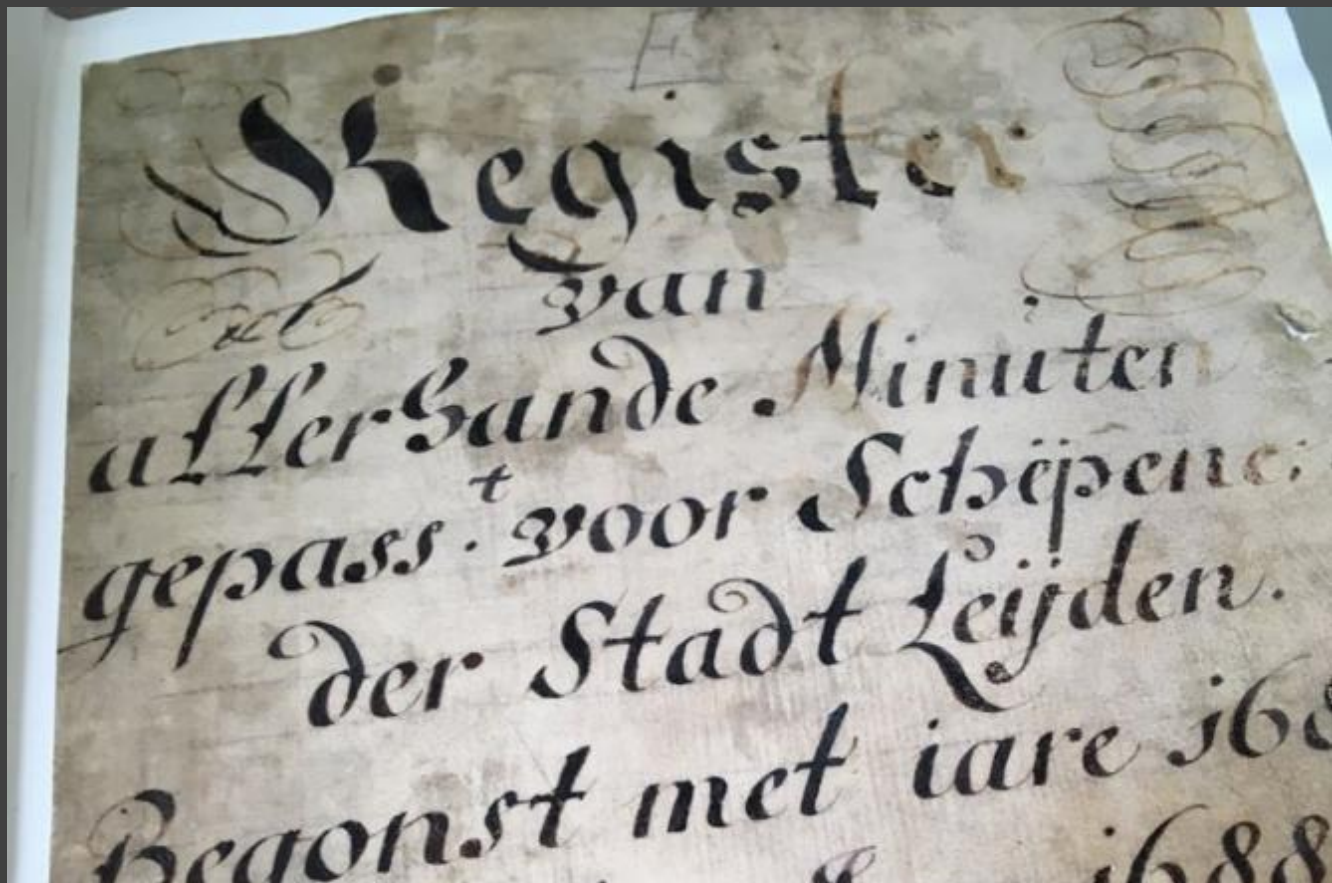 E
Register
van
allerhande Minuten
gepass.t voor Schepene:
der Stadt Leijden.
Begonst met iare 168
1688